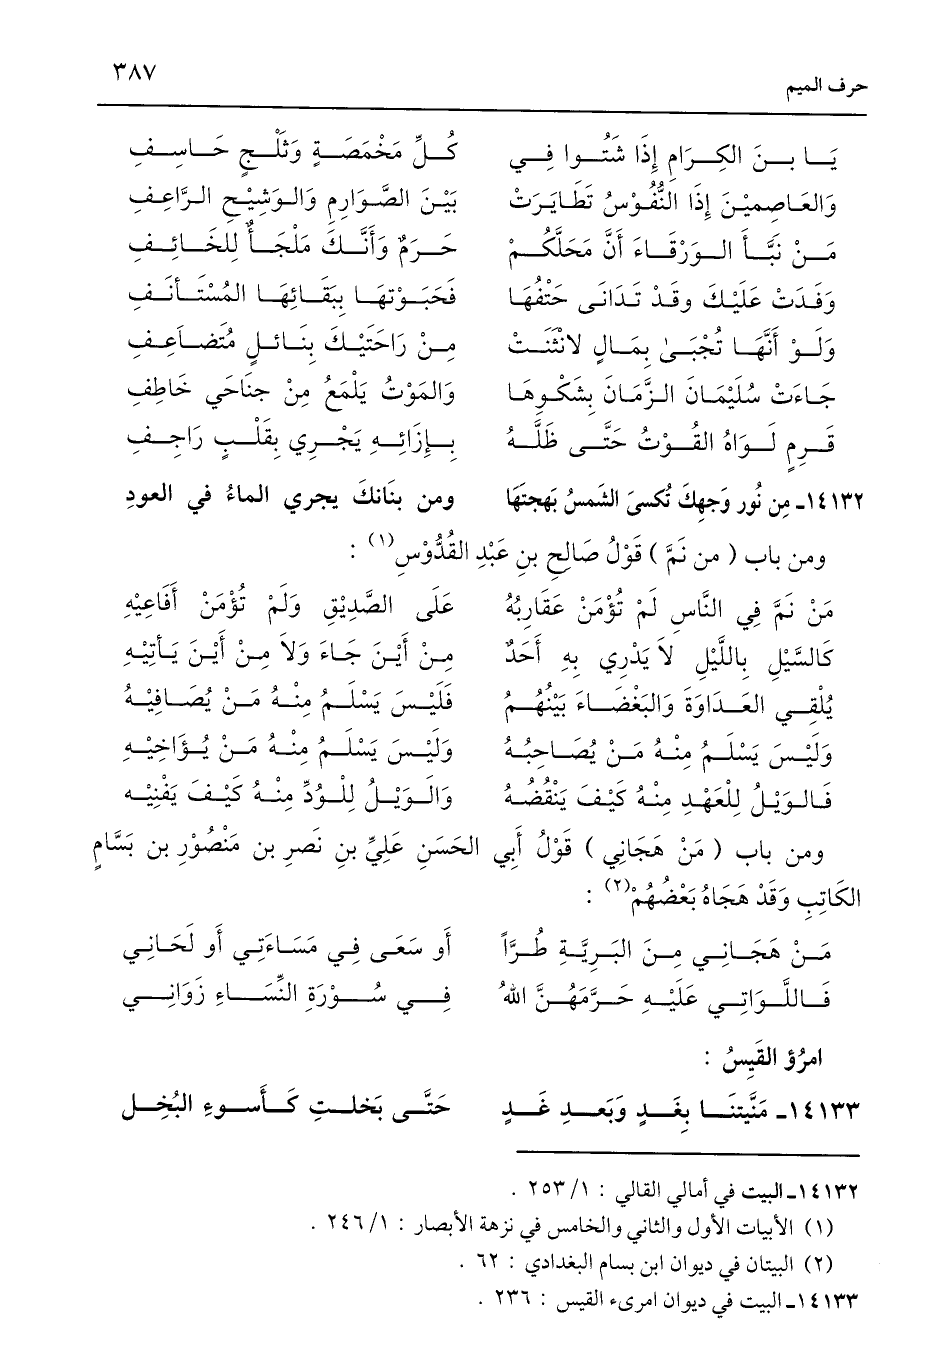 حرف الميم ٣٨٧
يَا بنَ الكِرَامِ إِذَا شَتَوا فِي كُلِّ مَخْمَصَةٍ وَثَلْجٍ خَاسِفِ
وَالعَاصِمِيْنَ إِذَا النُّفُوْسُ تَطَايَرَتْ بَيْنَ الصَّوَارِمِ وَالوَشِيْجِ الرَّاعِفِ
مَنْ نَبَّأَ الوَرْقَاءَ أَنَّ مَحَلَّكُمْ حَرَمٌ وَأَنَّكَ مَلْجَأٌ لِلخَائِفِ
وَفَدَتْ عَلَيْكَ وَقَدْ تَدَانَى حَتْفُهَا فَحَبَوْتهَا بِبَقَائِهَا المُسْتَأنَفِ
وَلَوْ أَنَّهَا تُحْبَىٰ بِمَالٍ لانْثَنَتْ مِنْ رَاحَتَيْكَ بِنَائِلٍ مُتَضَاعِفِ
جَاءَتْ سُلَيْمَانَ الزَّمَانَ بِشَكْوِهَا وَالمَوْتُ يَلْمَعُ مِنْ جِنَاحَي خَاطِفِ
قَرِمٍ لَوَاهُ القُوْتُ حَتَّى ظَلَّهُ بِإِزَائِهِ يَجْرِي بِقَلْبٍ رَاجِفِ
١٤١٣٢ـ مِن نُورِ وَجهِكَ تُكسَى الشَمسُ بَهجتَهَا ومن بنَانكَ يجري الماءُ في العودِ
ومن باب ( من نمَّ ) قَوْلُ صَالِحِ بنِ عَبْدِ القُدُّوْسِ(١) :
مَنْ نَمَّ فِي النَّاسِ لَمْ تُؤمَنْ عَقَارِبُهُ عَلَى الصَّدِيْقِ وَلَمْ تُؤْمَنْ أَفَاعِيْهِ
كَالسَّيْلِ بِاللَّيْلِ لاَ يَدْرِي بِهِ أَحَدٌ مِنْ أَيْنَ جَاءَ وَلاَ مِنْ أَيْنَ يَأتِيْهِ
يُلْقِي العَدَاوَةَ وَالبَغْضَاءَ بَيْنَهُم فَلَيْسَ يَسْلَمُ مِنْهُ مَنْ يُصَافِيْهُ
وَلَيْسَ يَسْلَمُ مِنْهُ مَنْ يُصَاحِبُهُ وَلَيْسَ يَسْلَمُ مِنْهُ مَنْ يُؤَاخِيْهِ
فَالوَيْلُ لِلْعَهْدِ مِنْهُ كَيْفَ يَنْقُضُهُ وَالوَيْلُ لِلْوُدِّ مِنْهُ كَيْفَ يَفْنِيْهِ
ومن باب ( مَنْ هَجَانِي ) قَوْلُ أَبِي الحَسَنِ عَلِيِّ بنِ نَصرِ بن مَنْصُوْرِ بن بَسَّامِ
الكَاتِبِ وَقَدْ هَجَاهُ بَعْضُهُمْ(٢) :
مَنْ هَجَانِي مِنَ البَرِيَّةِ طُرَّاً أَو سَعَى فِي مَسَاءَتِي أَو لَحَانِي
فَاللَّوَاتِي عَلَيْهِ حَرَّمَهُنَّ اللهُ فِي سُوْرَةِ النِّسَاءِ زَوَانِي
امرُؤ القَيسُ :
١٤١٣٣ـ مَنَّيتنَا بِغَدٍ وَبَعدِ غَدٍ حَتَّى بَخلتِ كَأَسوءِ البُخلِ
١٤١٣٢ـ البيت في أمالي القالي : ١/ ٢٥٣ .
(١) الأبيات الأول والثاني والخامس في نزهة الأبصار : ١/ ٢٤٦ .
(٢) البيتان في ديوان ابن بسام البغدادي : ٦٢ .
١٤١٣٣ـ البيت في ديوان امرىء القيس : ٢٣٦ .